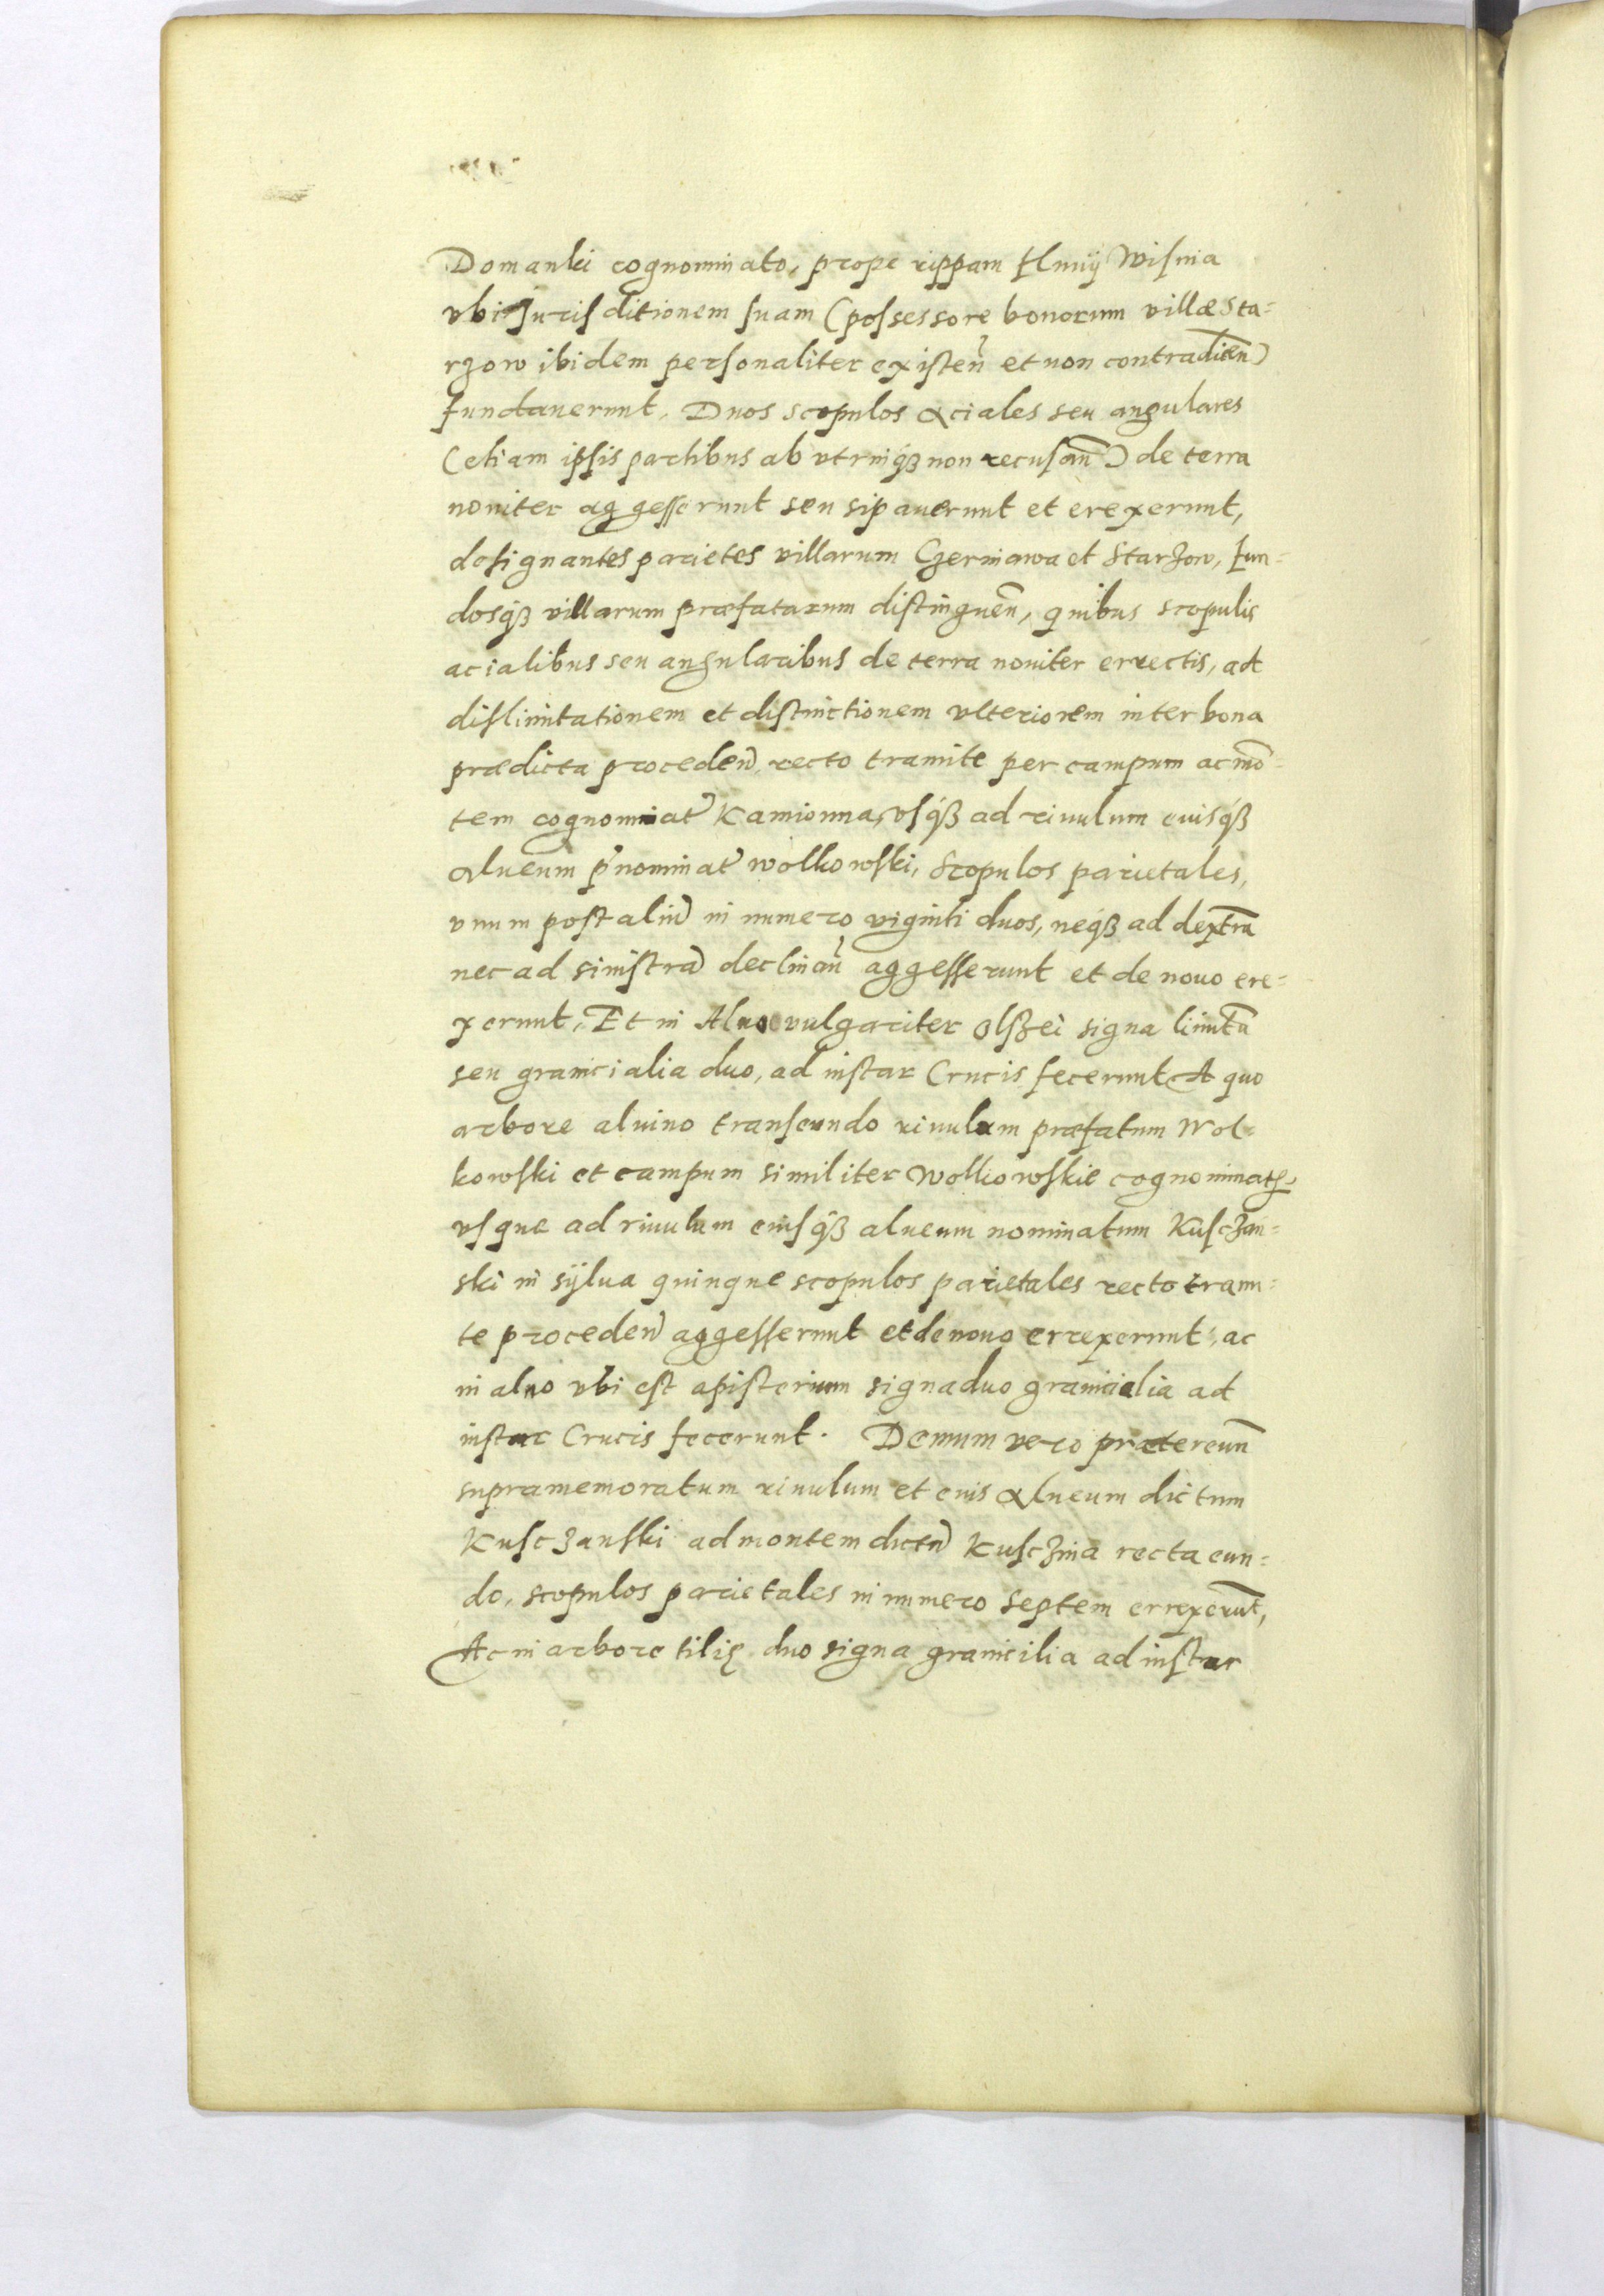 Domanki cognominato, prope rippam fluuij Wisnia
vbi Jurisditionem suam (possessore bonorum villæ Sta-
rzow ibidem personaliter existen̄ et non contradicen̄)
fundauerunt. Duos scopulos aciales seu angulares
(etiam ipsis partibus ab vtrinq́ȝ non recusan̄) de terra
nouiter aggesserunt seu sipauerunt et erexerunt,
designantes parietes villarum Czerniawa et Starzow, fun-
dosq́ȝ villarum præfatarum distinguen̄, quibus scopulis
acialibus seu angularibus de terra nouiter errectis, ad
dislimitationem et distinctionem vlteriorem inter bona
prædicta proceden̄, recto tramite per campum ac mō-
tem cognominat̄ Kamionna, vsq́ȝ ad riuulum euisq́ȝ
alueum p̄nominat̄ wolkowski, Scopulos parietales,
vnum post aliū in numero viginti duos, neq́ȝ ad dextrā
nec ad sinistrā declinan̄ aggesserunt et de nouo ere-
xerunt, Et in Alno vulgariter olszei signa limitū
seu granicialia duo, ad instar Crucis fecerunt A quo
arbore aluino transeundo riuulum præfatum Wol-
kowski et campum similiter Wolkowskie cognominatȩ,
vsque ad riuulum eiusq́ȝ alueum nominatum Kusczan-
ski in sÿlua quinque scopulos parietales recto trami-
te proceden̄ aggesserunt et de nouo errexerunt, ac
in alno vbi est apisterium signa duo granicialia ad
instar Crucis fecerunt. Demum vero prætereun̄
supramemoratum riuulum et euis alueum dictum
Kusczanski ad montem dictū Kusczina recta eun-
do, scopulos parietales in numero septem errexerūt,
Ac in arbore tiliȩ duo signa granicilia ad instar